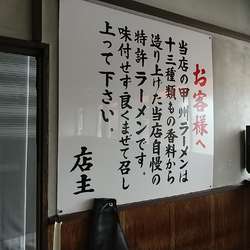 お客様へ
当店の甲州ラーメンは
十三種類もの香料から
造り上げた当店自慢の
特許ラーメンです。
味付せず良くまぜて召し
上って下さい。
店主